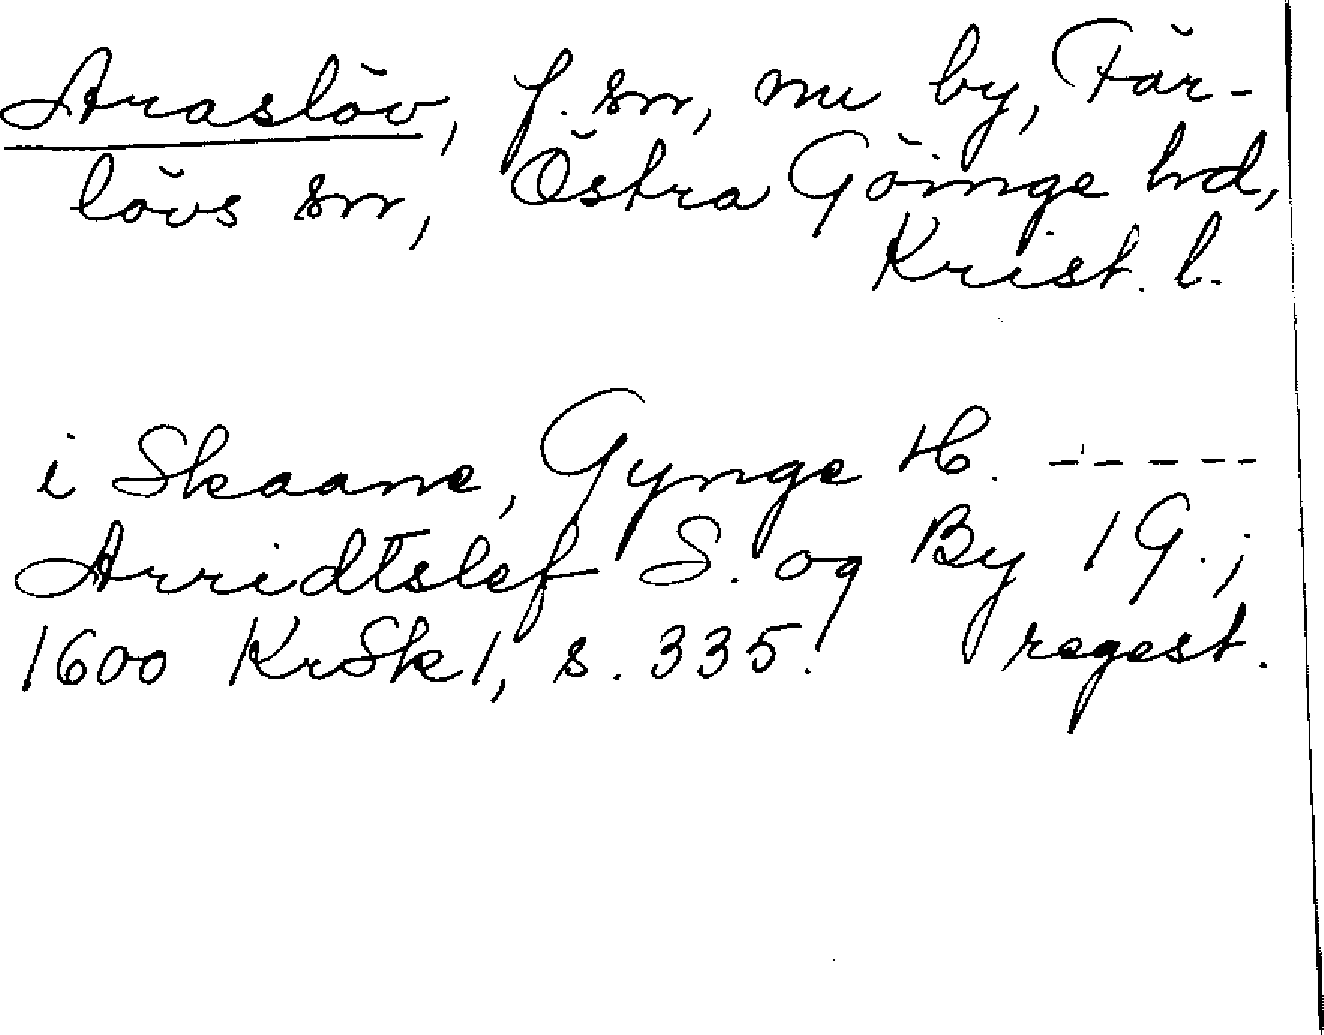 Araslöv, f. sn, nu by, Fär-
lövs sn, Östra Göinge hd,
Krist. l.
i Skaane, Gynge H. -----
Arridtslef S. og By 1 G.;
1600 KrSk 1, s. 335. regest.